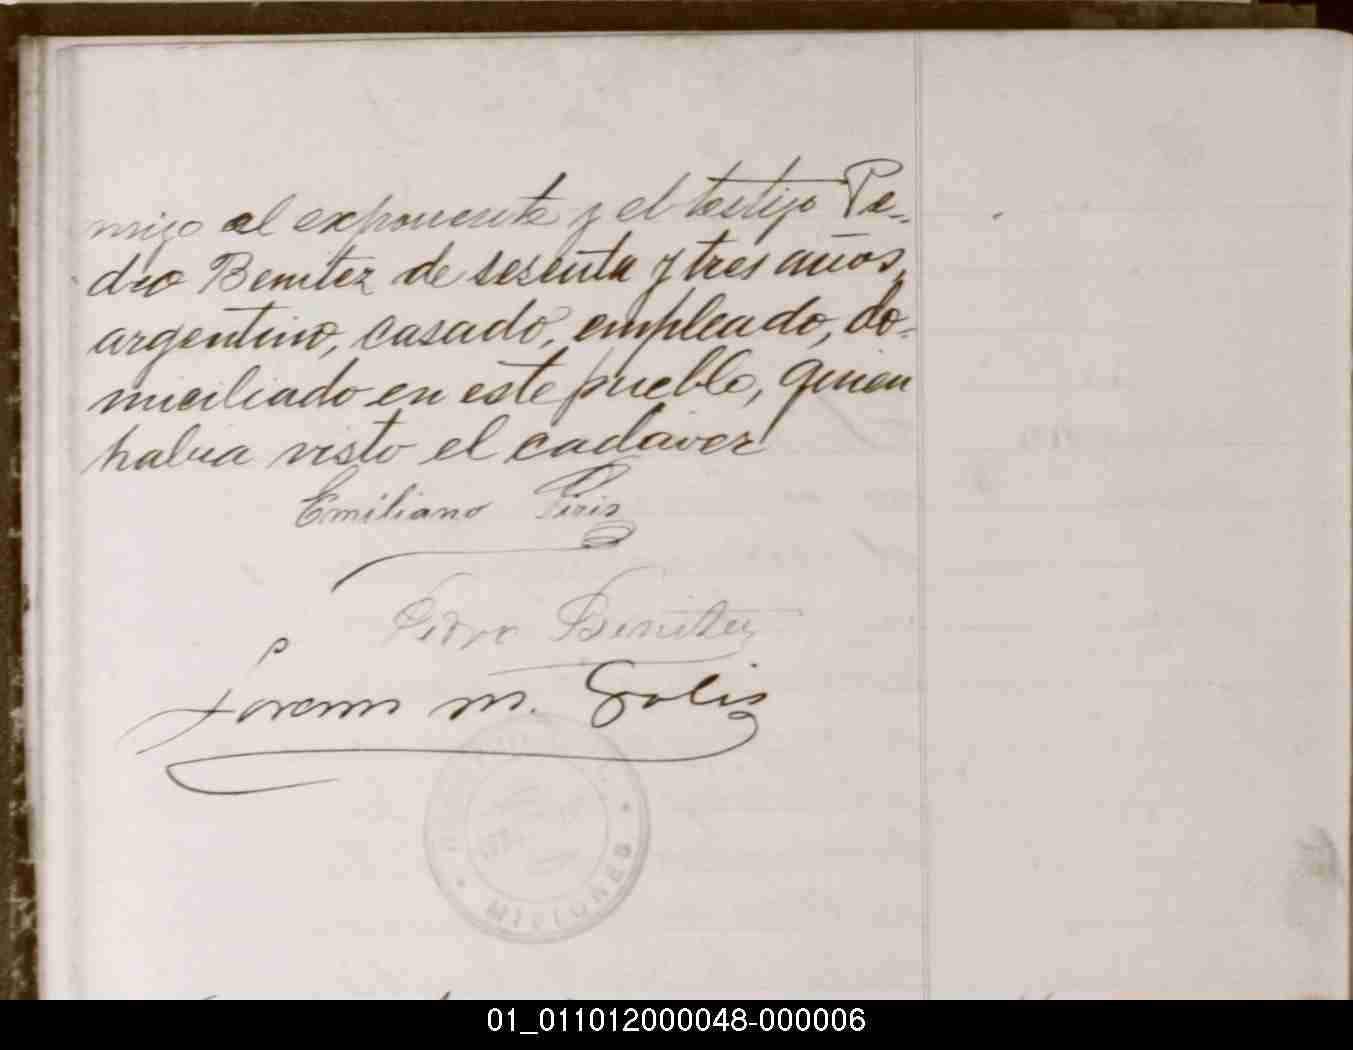 migo el exponente y el testigo Pe-
dro Benitez de sesenta y tres años,
argentino, casado, empleado, do-
miciliado en este pueblo, quien
habia visto el cadaver
Emiliano Piris
Pedro Benitez
Lorenzo M. Solis
MISIONES
01_011012000048-000006